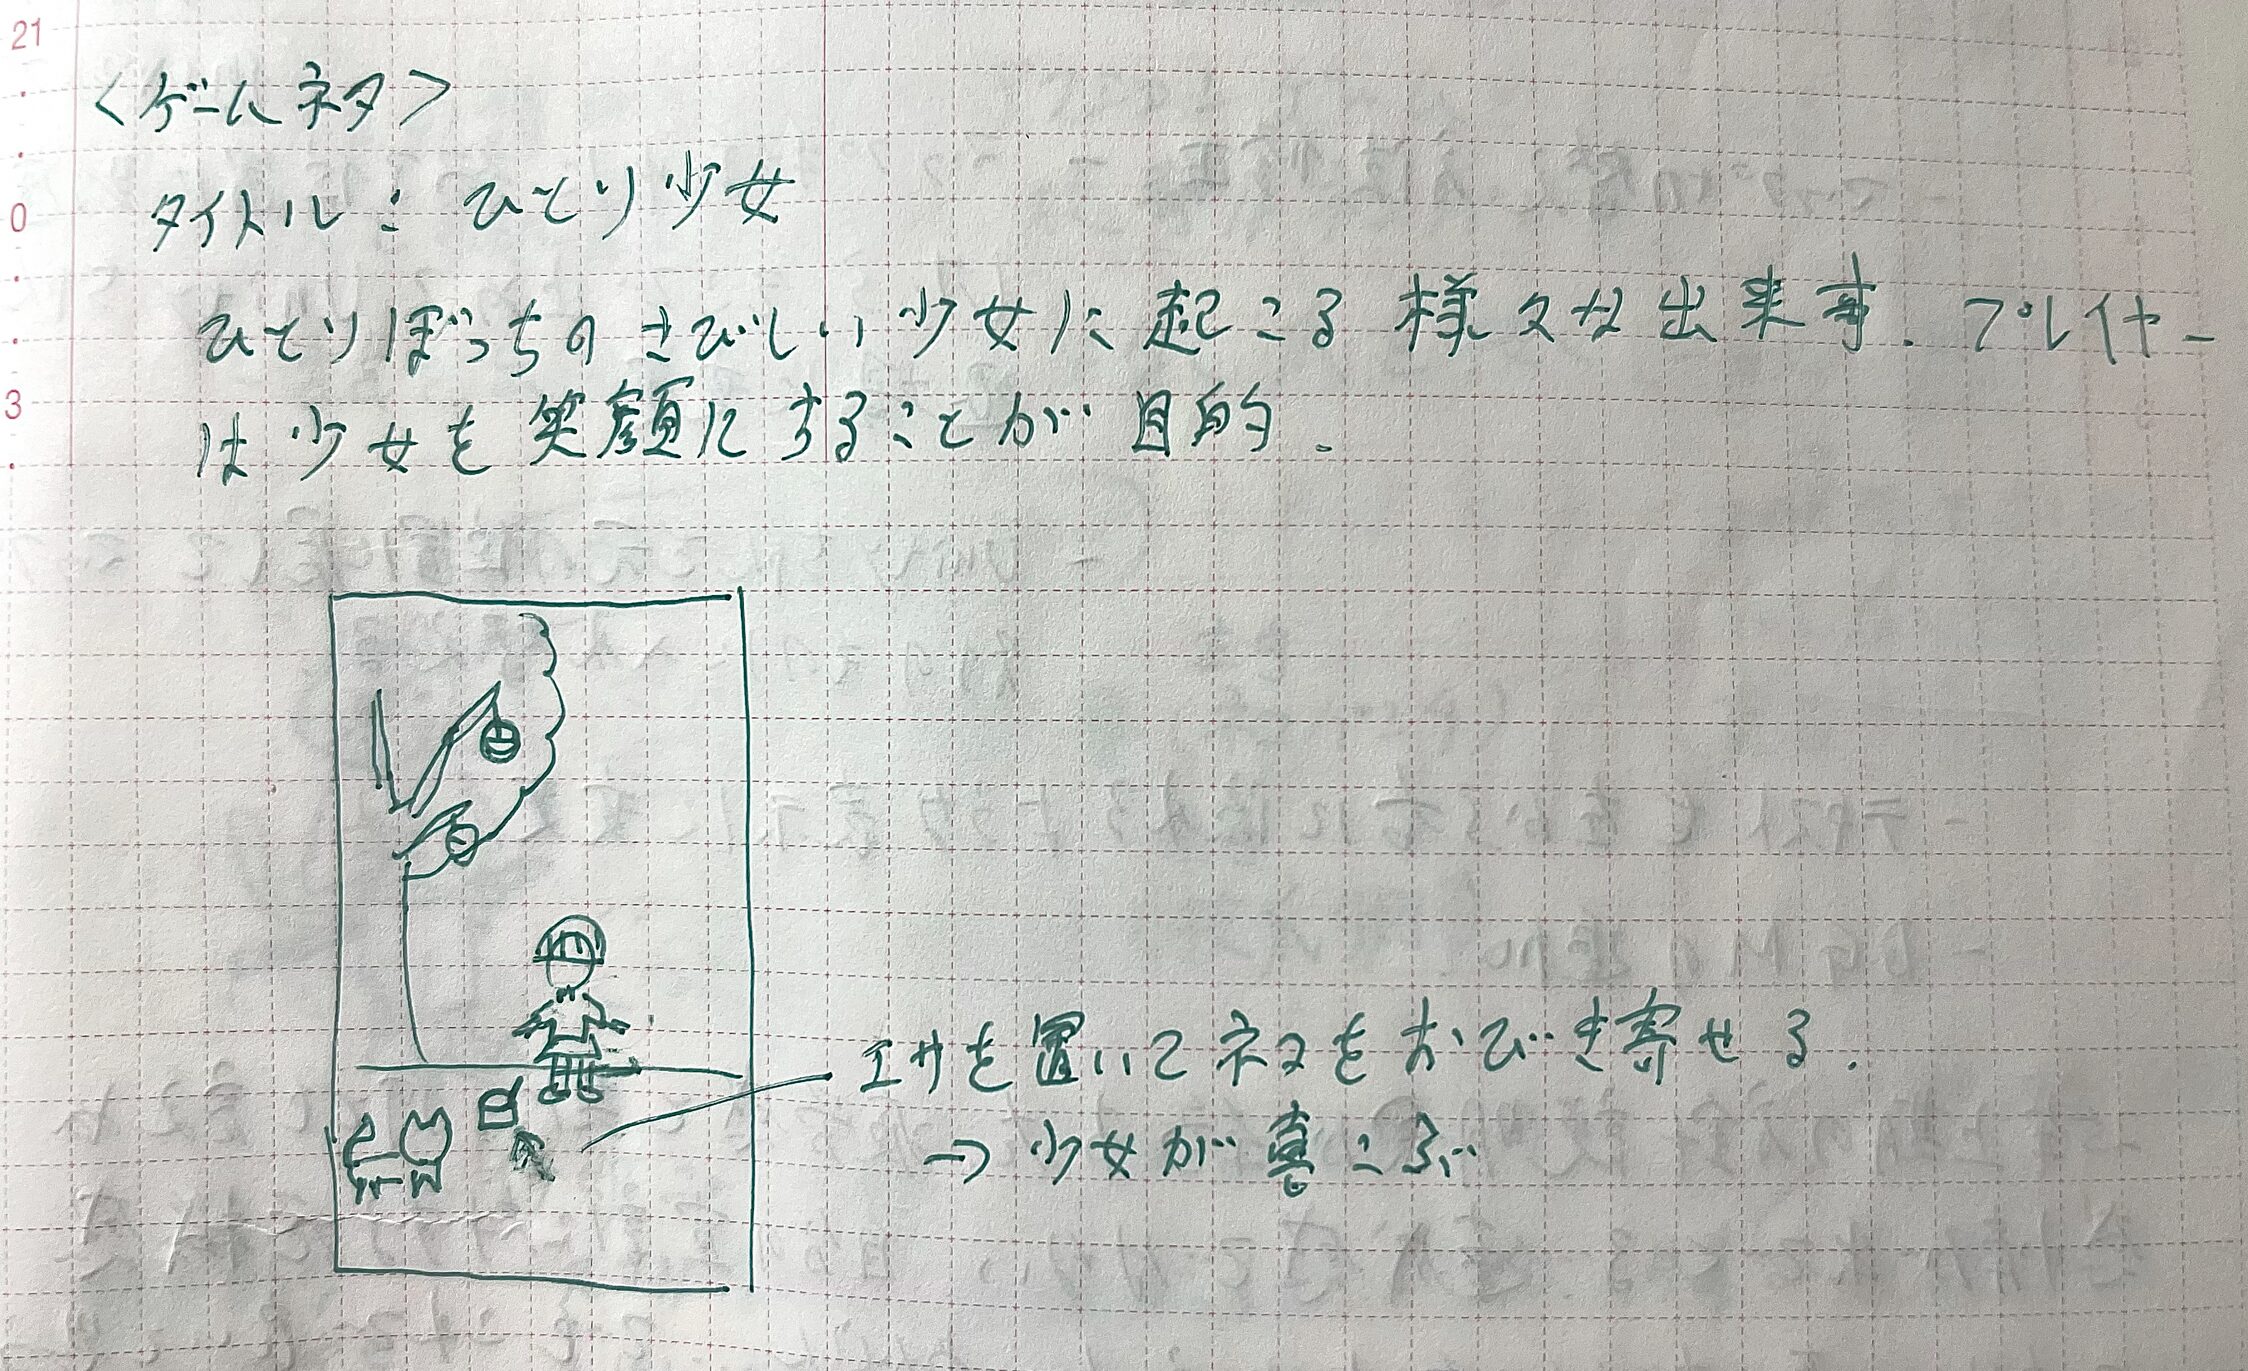 21
0
3
<ゲームネタ>
タイトル：ひとり少女
ひとりぼっちのさびしい少女に起こる様々な出来事．プレイヤー
は少女を笑顔にすることが目的．
エサを置いてネコをおびき寄せる．
→少女が喜こぶ